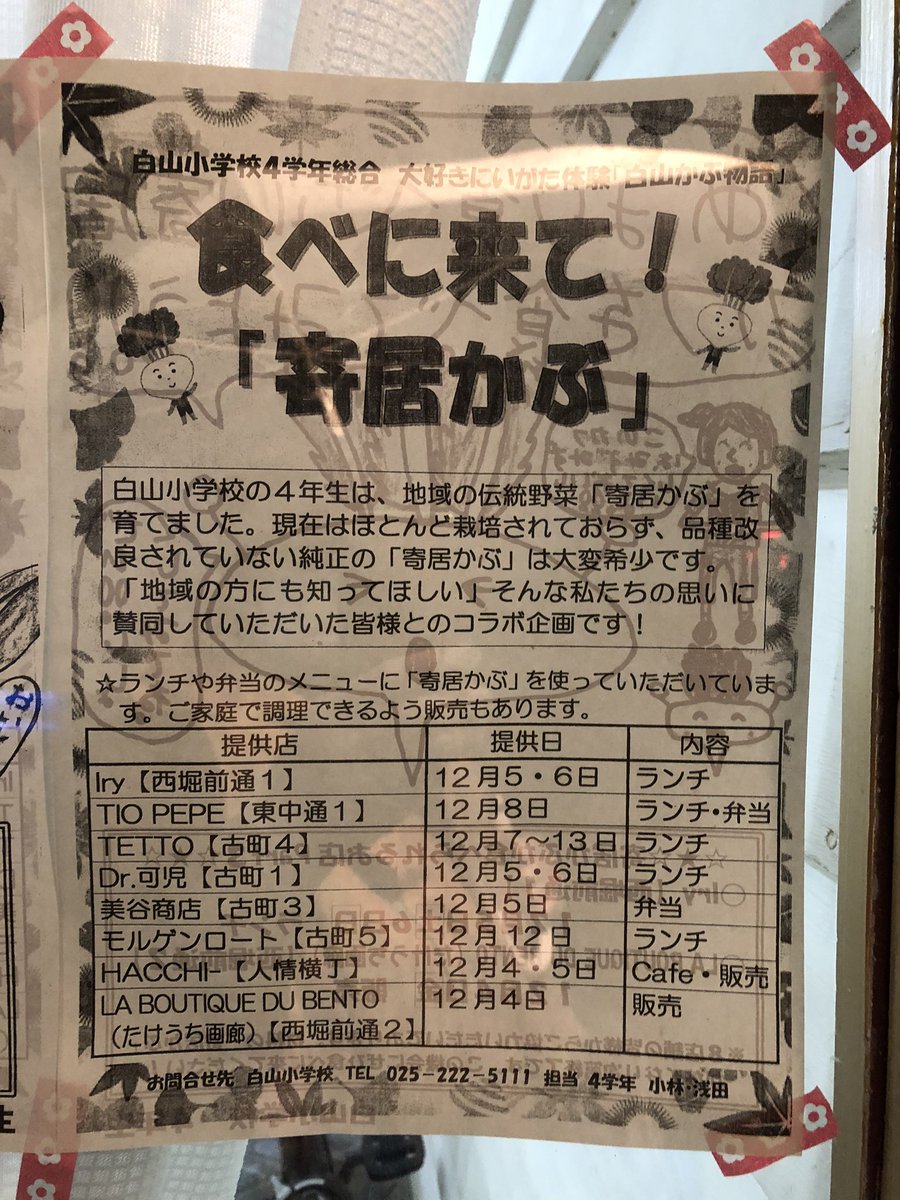 白山小学校4学年総合 大好きにいがた体験「白山かぶ物語」
食べに来て！
「寄居かぶ」
白山小学校の４年生は、地域の伝統野菜「寄居かぶ」を
育てました。現在はほとんど栽培されておらず、品種改
良されていない純正の「寄居かぶ」は大変希少です。
「地域の方にも知ってほしい」そんな私たちの思いに
賛同していただいた皆様とのコラボ企画です！
☆ランチや弁当のメニューに「寄居かぶ」を使っていただいていま
す。ご家庭で調理できるよう販売もあります。
提供店 提供日 内容
Iry【西堀前通１】 １２月５・６日 ランチ
TIO PEPE【東中通１】 １２月８日 ランチ・弁当
TETTO【古町４】 １２月７～１３日 ランチ
Dr.可児【古町１】 １２月５・６日 ランチ
美谷商店【古町３】 １２月５日 弁当
モルゲンロート【古町５】 １２月１２日 ランチ
HACCHI-【人情横丁】 １２月４・５日 Cafe・販売
LA BOUTIQUE DU BENTO １２月４日 販売
（たけうち画廊）【西堀前通２】
お問合せ先 白山小学校 TEL 025-222-5111 担当 4学年 小林・浅田